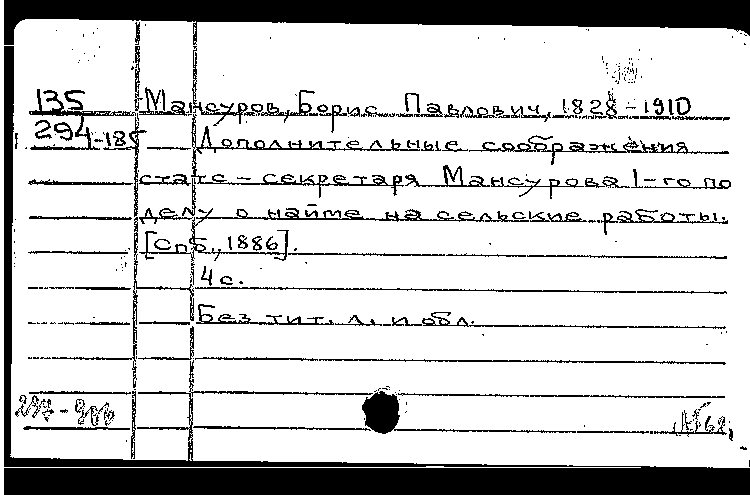 135 Мансуров, Борис Павлович, 1828-1910
294-185 Дополнительные соображения
статс-секретаря Мансурова 1-го по
делу о найме на сельские работы.
[Спб., 1886].
4 с.
Без тит. л. и обл.